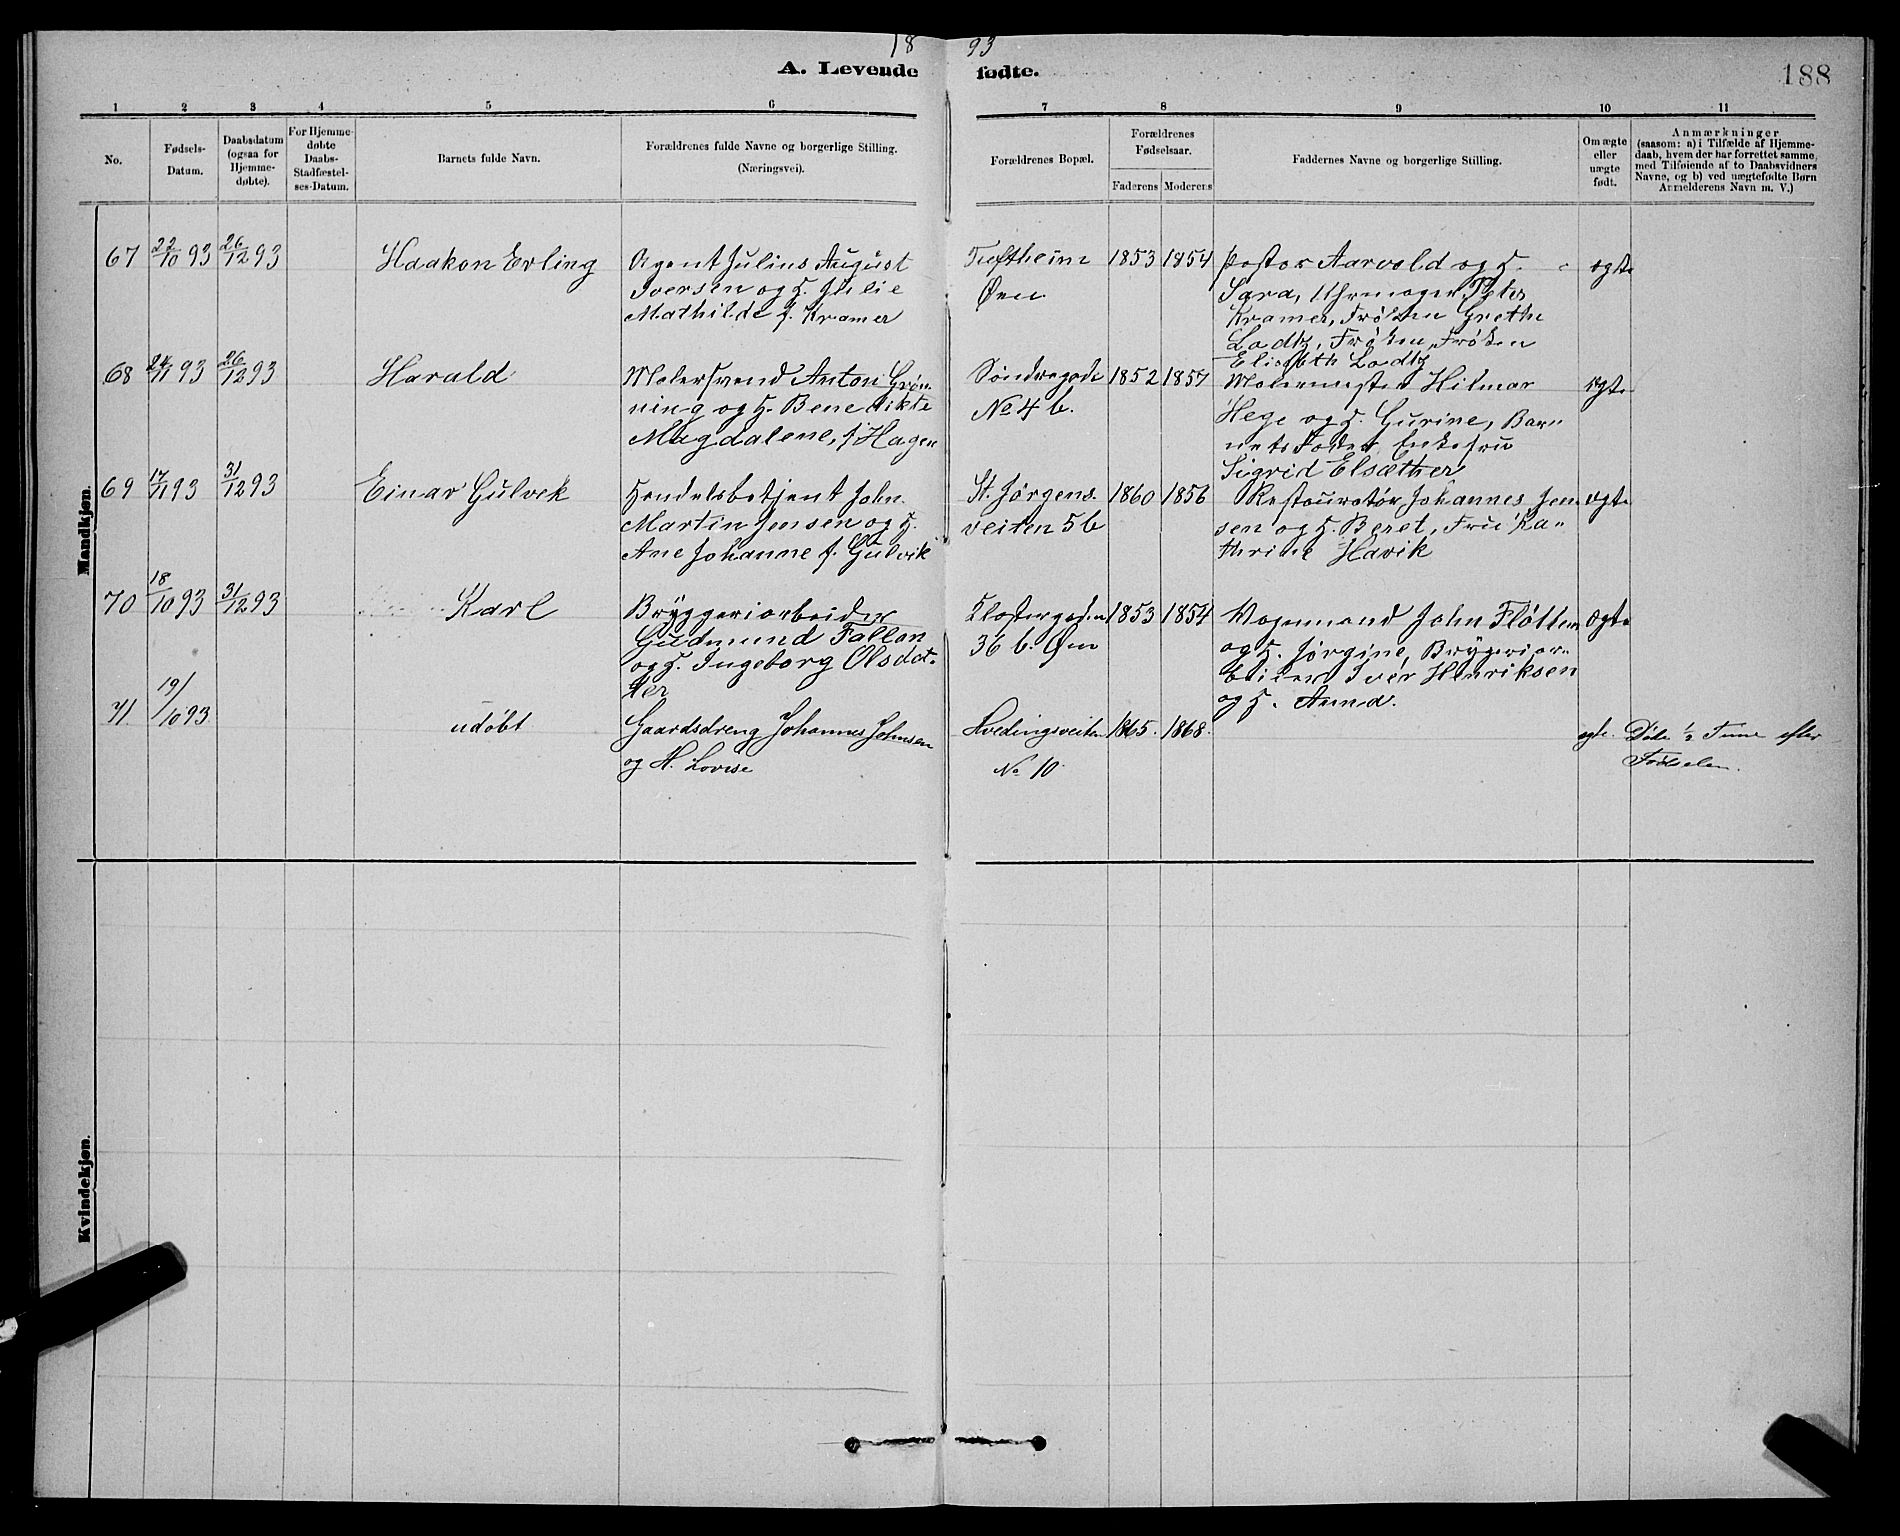 18 93
A. Levende fødte.
188
1 2 3 4 5 6 7 8 9 10 11
No.
Fødsels-
Datum.
Daabsdatum
(ogsaa for
Hjemme-
døbte).
For Hjemme-
døbte
Daabs-
Stadfæstel-
ses-Datum.
Barnets fulde Navn.
Forældrenes fulde Navne og borgerlige Stilling.
(Næringsvei).
Forældrenes Bopæl.
Forældrenes
Fødselsaar.
Faderens Moderens
Faddernes Navne og borgerlige Stilling.
Om ægte
eller
uægte
født.
Anmærkninger
(saasom: a) i Tilfælde af Hjemme-
daab, hvem der har forrettet samme,
med Tilføiende af to Daabsvidners
Navne, og b) ved uægtefødte Børn
Anmelderens Navn m. V.)
Mandkjøn.
67 22/10 93 26/12 93
Haakon Erling
Agent Julius August
Iversen og H. Julie
Mathilde f. Kramer
Tuftheim
Øen.
1853 1854
Pastor Aarvold og H.
Sara, Uhrmager Peter
Kramer, Frøken Grethe
Ladtz, Frøken, Frøken
Elisabth Ladtz
ægte
68 24/11 93 26/12 93
Harald
Malersvend Anton Grøn-
ning og H. Benedikte
Magdalene, f. Hagen
Søndregade
No 4 b.
1852 1857
Malermester Hilmar
Hege og H. Gurine, Bar-
nets Fader, Enkefru
Sigrid Elsæther
ægte
69 17/11 93 31/12 93
Einar Gulvik
Handelsbetjent John
Martin Jensen og H.
Ane Johanne f. Gulvik
St. Jørgens-
veiten 5 b
1860 1856
Restauratør Johannes Jen-
sen og H. Beret, Fru Ka-
thrine Havik
ægte
70 18/10 93 31/12 93
Karl
Bryggeriarbeider
Gudmund Fallan
og H. Ingeborg Olsdat-
ter
Klostergaden
36 b. Øen
1853 1854
Vognmand John Fløtten
og H. Jørgine, Bryggeriar-
beider Iver Henriksen
og H. Anna.
ægte
71. 19/10 93
udøbt
Gaardsdreng Johannes Johnsen
og H. Lovise
Hvedingsveiten
No 10
1865. 1868.
ægte.
Døde 1/2 Time efter
Fødselen.
Kvindekjøn.